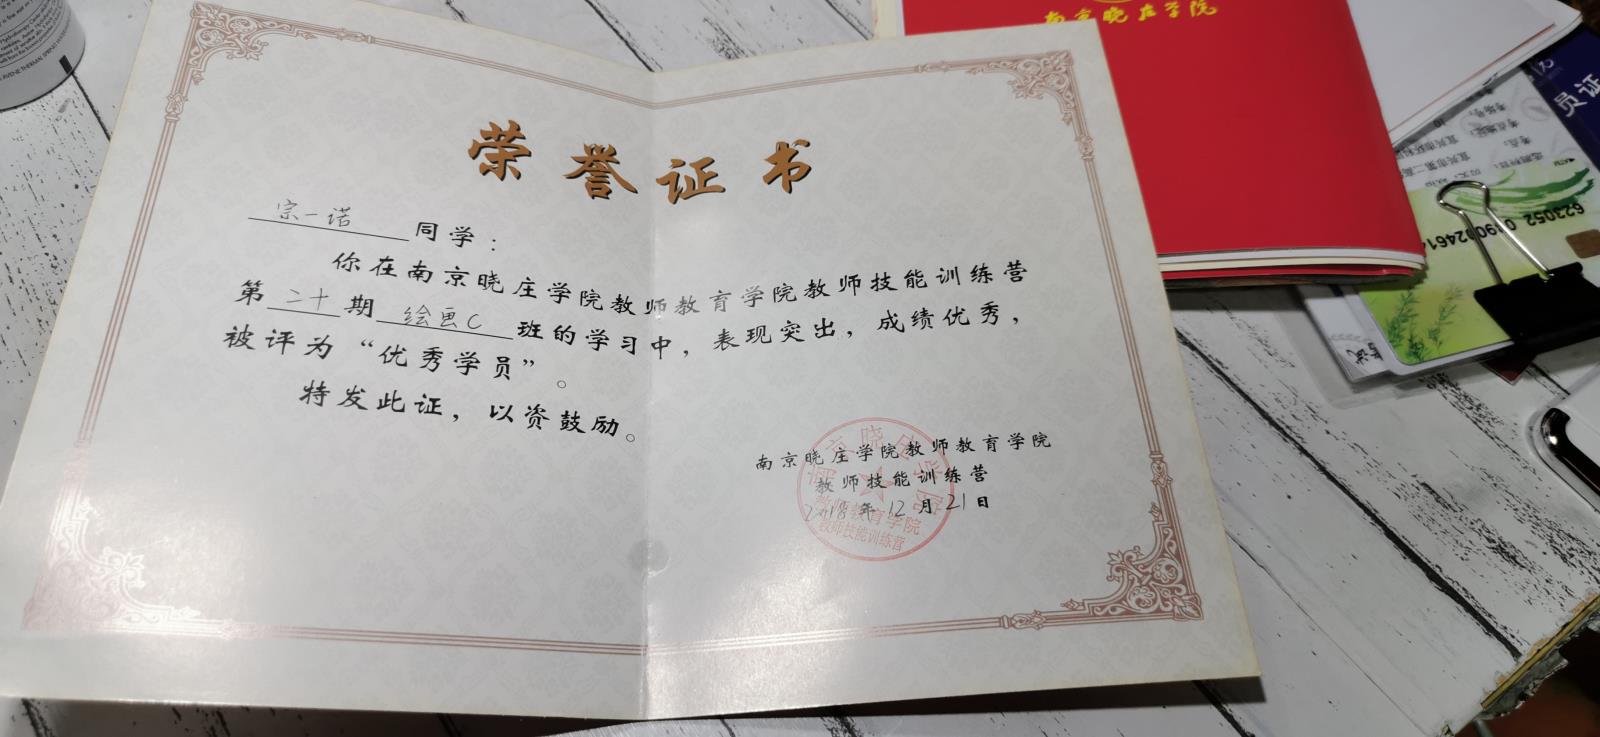 荣誉证书
宗一诺 同学：
你在南京晓庄学院教师教育学院教师技能训练营
第二十期绘画C班的学习中，表现突出，成绩优秀，
被评为“优秀学员”。
特发此证，以资鼓励。
南京晓庄学院教师教育学院
教师技能训练营
2018年12月21日
教师教育学院
教师技能训练营
南京晓庄学院
员证
623052